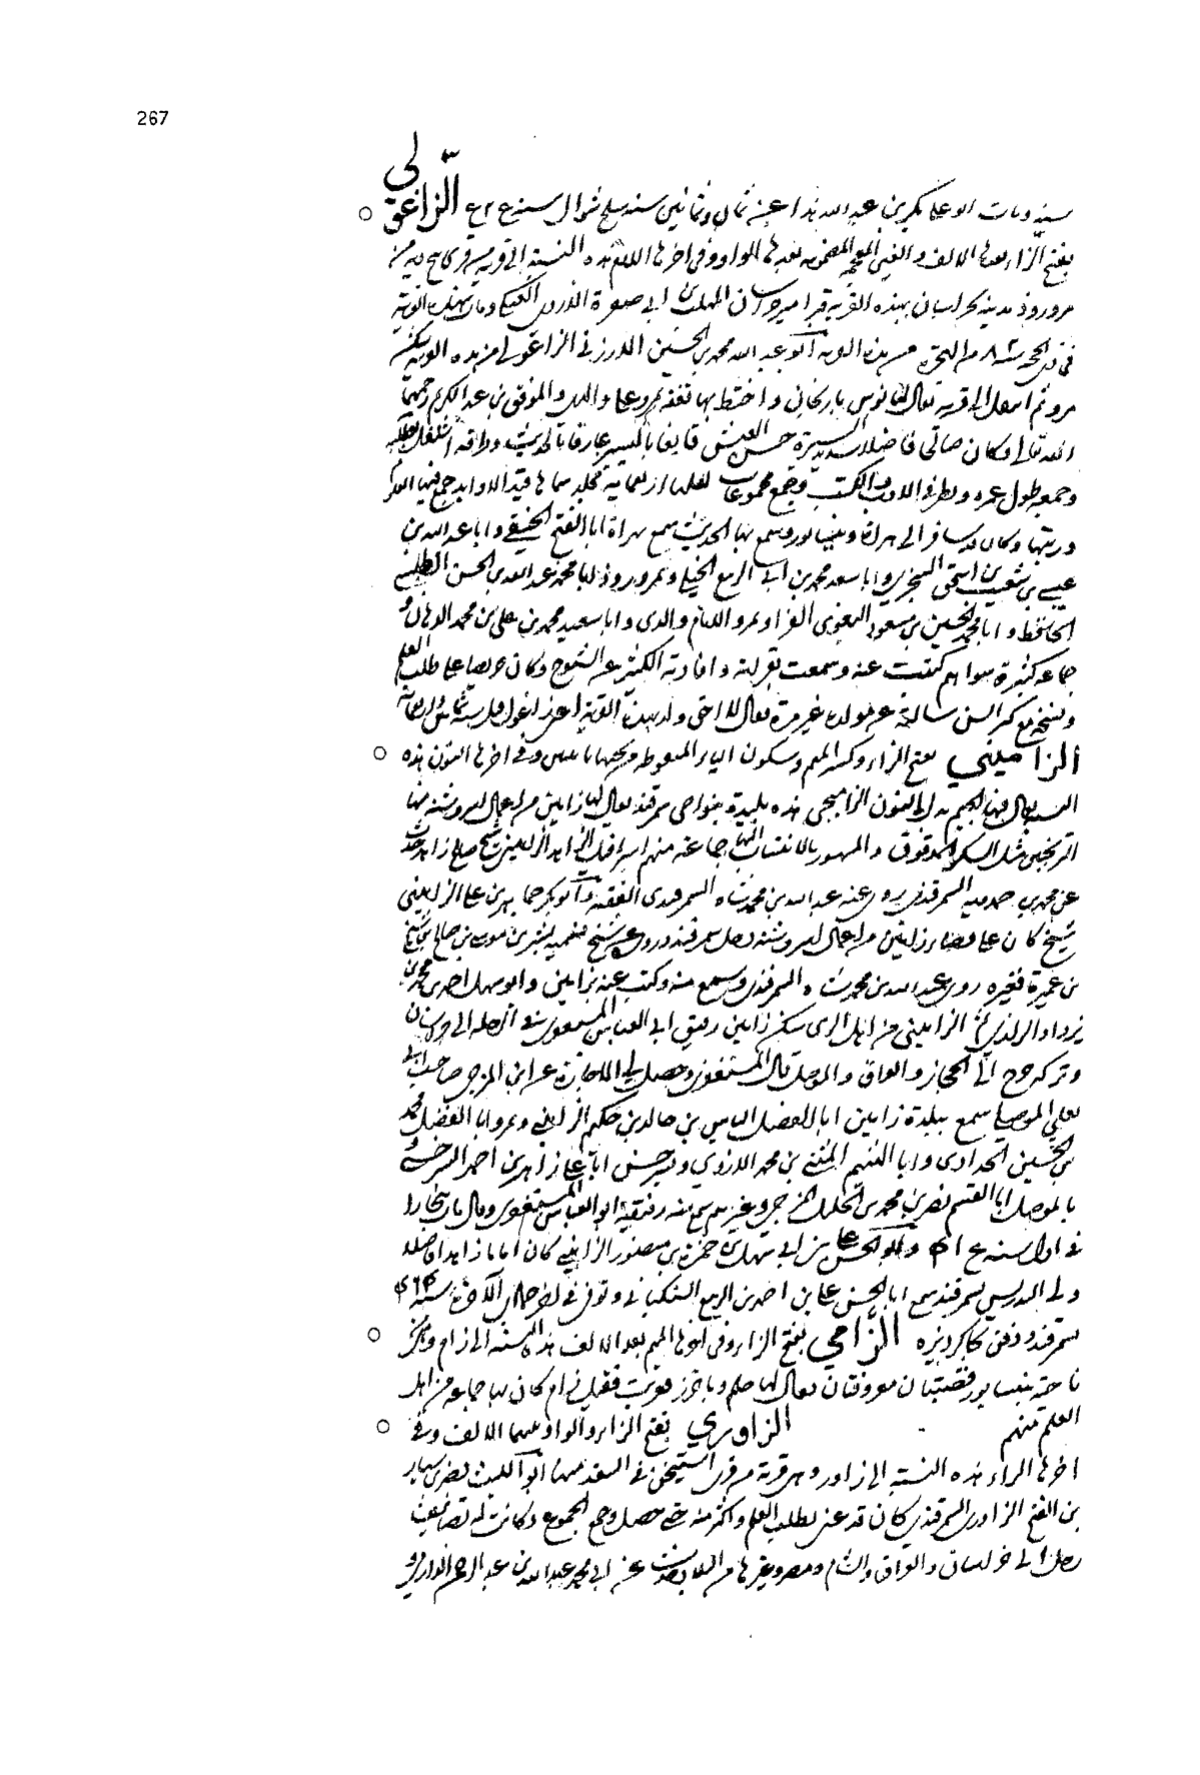 267
سنة ومات ابو علي بكر بن عبد الله هذا عن ثمان وثمانين سنة سلخ شوال سنة الزاغولي
بفتح الزاء بعدها الالف والغين المعجمة المضمومة بعدها الواو وفي اخرها اللام هذه النسبة الى قرية من قرى
مروروذ مدينة بخراسان بهذه القرية قبر امير خراسان المهلب بن ابي صفرة الازدي العتكي ومات بهذه القرية
في ذي الحجة من الهجرة من هذه القرية ابو عبد الله محمد بن الحسين الارزي الزاغولي من هذه القرية سكن
مرو ثم انتقل الى قرية يقال لها نوس باركجان واختط بها تفقه بمرو على والدي والموفق بن عبد الكريم رحمهما
الله تعالى وكان صالحا فاضلا سديد السيرة حسن العيش قانعا باليسير عارفا بالحديث وطرقه اشتغل بطلبه
وجمعه طول عمره ونظر في الادب والكتب وجمع مجموعات لعلها اربعمائة مجلد سماها قيد الاوابد جمع فيها
ورتبها وكان قد سافر الى هراة ونيسابور وسمع بها الحديث سمع بهراة ابا الفتح الحنيفي وابا عبد الله بن
عيسى بن شعيب بن اسحق السجزي وابا سعد محمد بن ابي الربيع الجيلي وبمروروذ ابا محمد عبد الله بن الحسن الطبسي
الحافظ وابا محمد الحسين بن مسعود البغوي الفراء وبمرو الامام والدي وابا سعيد محمد بن علي بن محمد الدهان و
جماعة كثيرة سواهم كتبت عنه وسمعت بقراته وافادته الكثير عن الشيوخ وكان حريصا على طلب العلم
ونسخه مع كبر السن سالته عن مولده غير مرة فقال لا احق ولد بهذه القرية اعني زاغول قبل سنة ثمانين واربعمائة
الزاميني بفتح الزاء وكسر الميم وسكون الياء المنقوطة من تحتها باثنتين وفي اخرها النون هذه
النسبة يقال فيها بالجيم بدل النون الزاميجي هذه بليدة بنواحي سمرقند يقال لها زامين من اعمال اسروشنة منها
الترنجبين مثل السكر المدقوق والمشهور بالانتساب اليها جماعة منهم الزاهد الزاميني شيخ صالح زاهد حدث
عن محمد بن السمرقندي روى عنه عبد الله بن محمد بن شاه السمرقندي الفقيه وابو بكر حما بن علي الزاميني
شيخ كان على قضاء زامين من اعمال اسروشنة دخل سمرقند وروى عن شيخ بن موسى بن صالح بن شيخ
بن عميرة وغيره روى عنه عبد الله بن محمد بن شاه السمرقندي وسمع منه وكتب عنه بزامين وابو سهل احمد بن محمد بن
يزداد الرازي ثم الزاميني من اهل الري سكن زامين رفيق ابي العباس المستغفري في الرحلة الى خراسان
وتركه وخرج الى الحجاز والعراق والموصل قال المستغفري وحصل لي الاجازة عن ابن المرجى صاحب ابي
يعلى الموصلي سمع ببلدة زامين ابا الفضل الياس بن خالد بن حكيم الزاميني وبمرو ابا الفضل محمد
بن الحسين الحدادي وابا الهيثم المثنى بن محمد الازدي وبسرخس ابا علي زاهر بن احمد السرخسي و
بالموصل ابا القسم نصر بن محمد بن الخليل المرجي وغيرهم سمع منه رفيقه ابو العباس المستغفري وقال مات ببخارا
في اول سنة وابو الحسن علي بن ابي سهل بن حمزة بن منصور الزاميني كان اماما زاهدا فاضلا
ولي التدريس بسمرقند سمع ابا الحسن علي بن احمد بن الربيع السنكباثي وتوفي في الاخرة سنة
بسمرقند ودفن بجاكرديزه الزامي بفتح الزاء وفي اخرها الميم بعد الالف هذه النسبة الى زام وهي
ناحية بنيسابور قصبتان معروفتان يقال لها جام وباخرز فعربت فقيل زام كان بها جماعة من اهل
العلم منهم الزاوري بفتح الزاء والواو بينهما الالف وفي
اخرها الراء هذه النسبة الى زاور وهي قرية من قرى اشتيخن في السغد منها ابو الليث نصر بن
بن الفتح الزاوري السمرقندي كان قد عني بطلب العلم واكثر منه حتى حصل وجمع الجموع وكانت له تصانيف
رحل الى خراسان والعراق والشام ومصر وغيرها من البلاد يحدث عن ابي محمد عبد الله بن عبد الرحمن الدارمي و